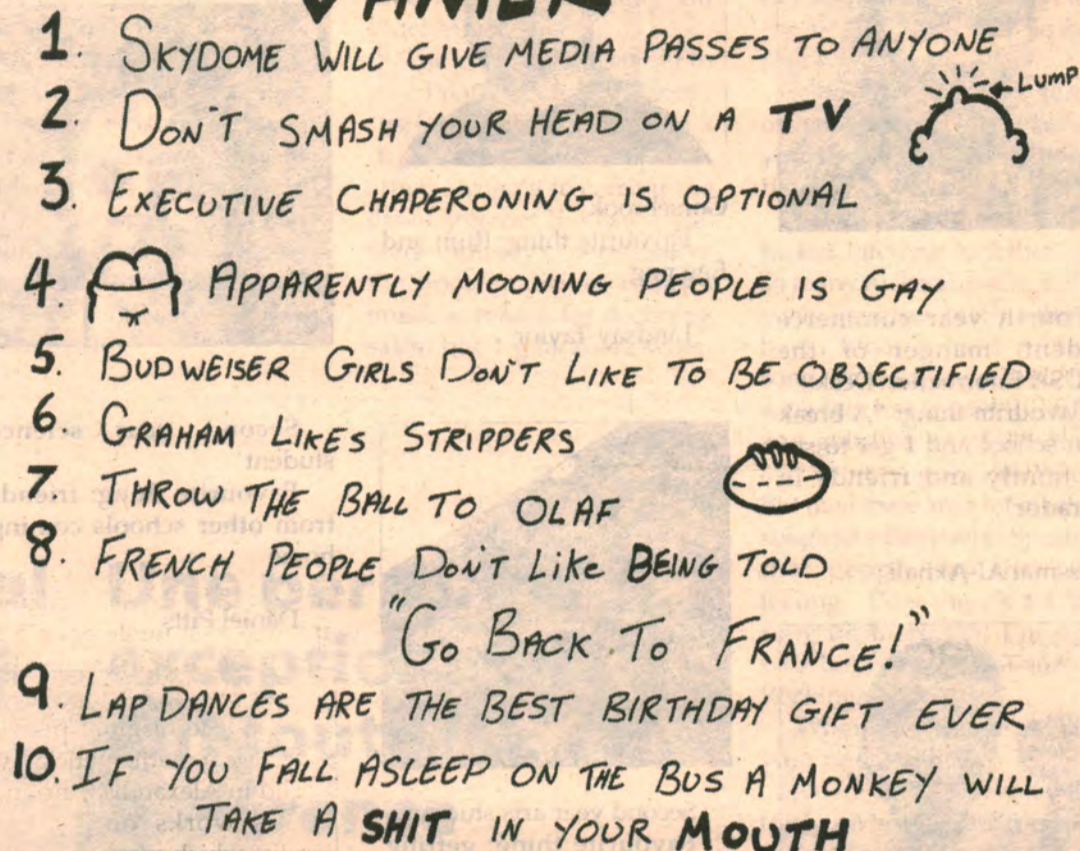 VANIER
1. SKYDOME WILL GIVE MEDIA PASSES TO ANYONE
LUMP
2. DON'T SMASH YOUR HEAD ON A TV
3. EXECUTIVE CHAPERONING IS OPTIONAL
4. APPARENTLY MOONING PEOPLE IS GAY
5. BUDWEISER GIRLS DON'T LIKE TO BE OBJECTIFIED
6 GRAHAM LIKES STRIPPERS
7. THROW THE BALL TO OLAF
8. FRENCH PEOPLE DON'T LIKE BEING TOLD
"GO BACK TO FRANCE!"
9. LAP DANCES ARE THE BEST BIRTHDAY GIFT EVER
10. IF YOU FALL ASLEEP ON THE BUS A MONKEY WILL
TAKE A SHIT IN YOUR MOUTH